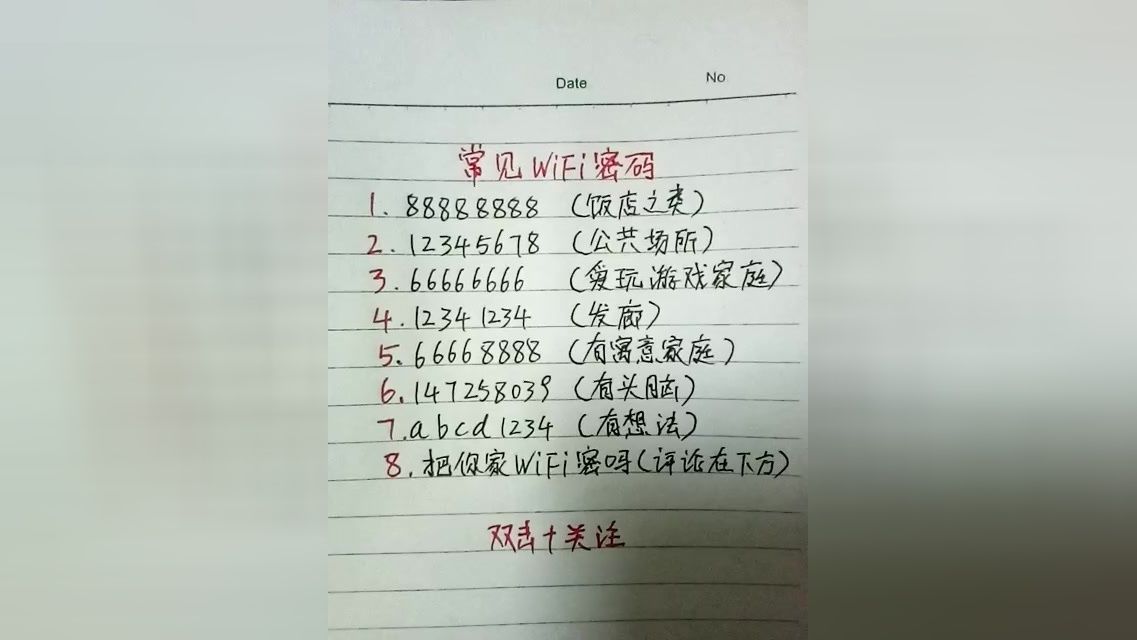 Date No
常见WiFi密码
1. 88888888 (饭店之类)
2. 12345678 (公共场所)
3. 66666666 (爱玩游戏家庭)
4. 12341234 (发廊)
5. 66668888 (有寓意家庭)
6. 147258039 (有头脑)
7. abcd1234 (有想法)
8. 把你家WiFi密吗(评论在下方)
双击+关注